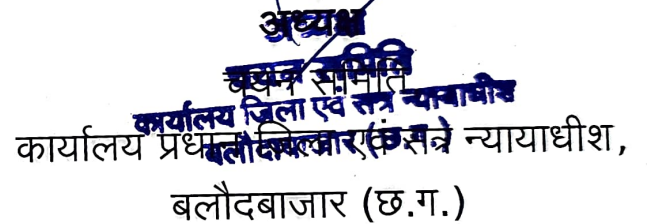 अध्यक्ष
चयन समिति
कार्यालय जिला एवं सत्र न्यायाधीश
बलौदाबाजार (छ.ग.)
कार्यालय प्रधान जिला एवं सत्र न्यायाधीश,
बलौदबाजार (छ.ग.)